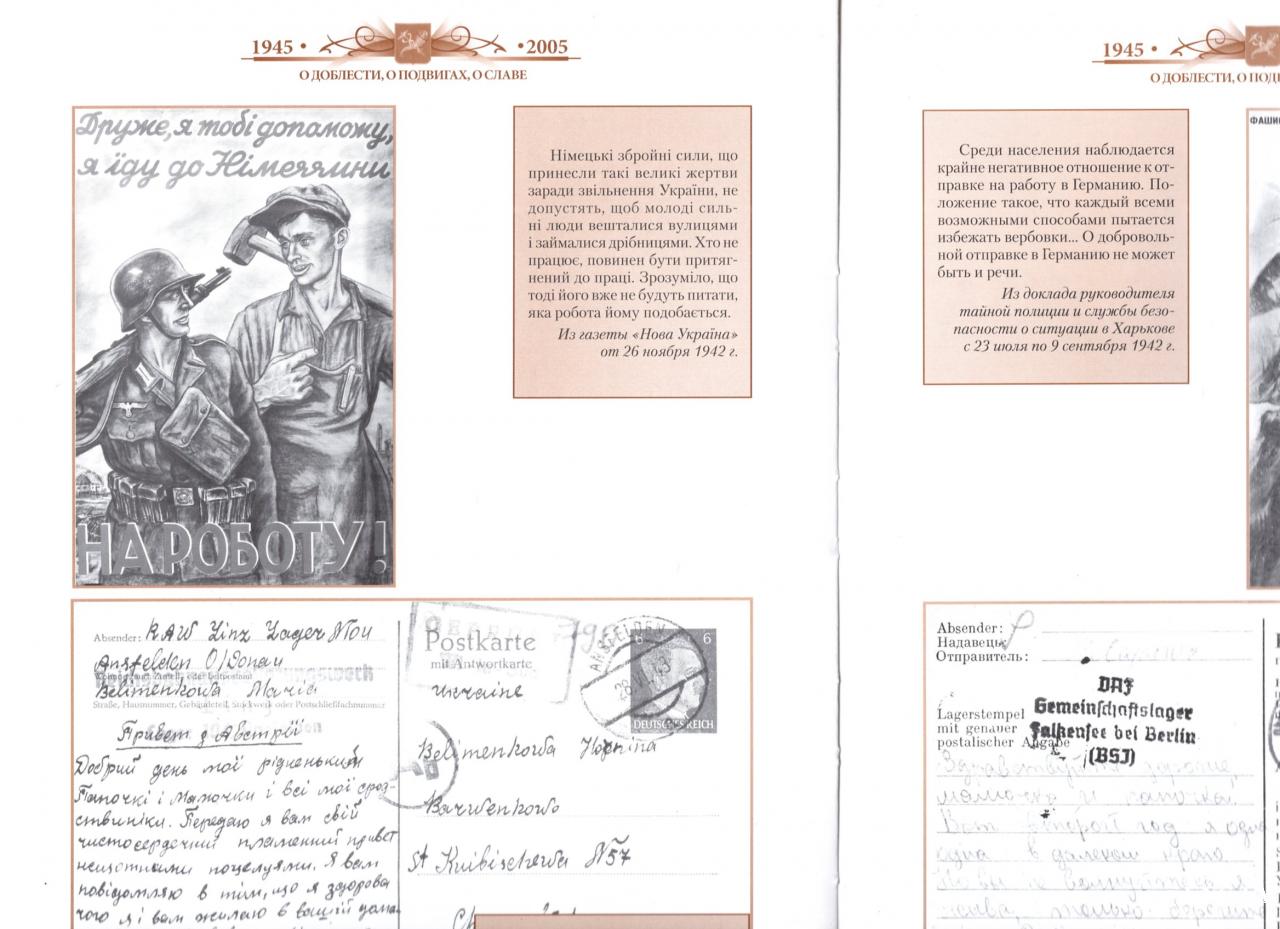 1945 • • 2005
О ДОБЛЕСТИ, О ПОДВИГАХ, О СЛАВЕ
Друже, я тобі допоможу,
я їду до Німеччини
НА РОБОТУ!
Німецькі збройні сили, що
принесли такі великі жертви
заради звільнення України, не
допустять, щоб молоді силь-
ні люди вешталися вулицями
і займалися дрібницями. Хто не
працює, повинен бути притяг-
нений до праці. Зрозуміло, що
тоді його вже не будуть питати,
яка робота йому подобається.
Из газеты «Нова Україна»
от 26 ноября 1942 г.
Absender: RAW Linz Lager
Ansfelden O/Donau
Belimenkowa Maria
Straße, Hausnummer, Gebäudeteil, Stockwerk oder Postschließfachnummer
Привет з Австрії
Добрий день мої рідненький
Папочкі і Мамочки і всі мої срод-
ствиніки. Передаю я вам свій
чистосердечий пламенний привет
нещотними поцелуями. Я вам
повідомляю в тім, що я здорова
чого я і вам желаю в вашій
Postkarte
mit Antwortkarte
Ukraine
ANSFELDEN
6 6
DEUTSCHES REICH
Belimenkowa
Barwenkowo
St Kuibischewa N57
1945 •
О ДОБЛЕСТИ, О
Среди населения наблюдается
крайне негативное отношение к от-
правке на работу в Германию. По-
ложение такое, что каждый всеми
возможными способами пытается
избежать вербовки... О доброволь-
ной отправке в Германию не может
быть и речи.
Из доклада руководителя
тайной полиции и службы безо-
пасности о ситуации в Харькове
с 23 июля по 9 сентября 1942 г.
Absender:
Надавець:
Отправитель:
Lagerstempel
mit genauer
postalischer Angabe
DAF
Gemeinschaftslager
Falkensee bei Berlin
(BSI)
Здравствуйте дорогие
мамочка и папочка.
Вот второй год я одна
одна в далеком краю